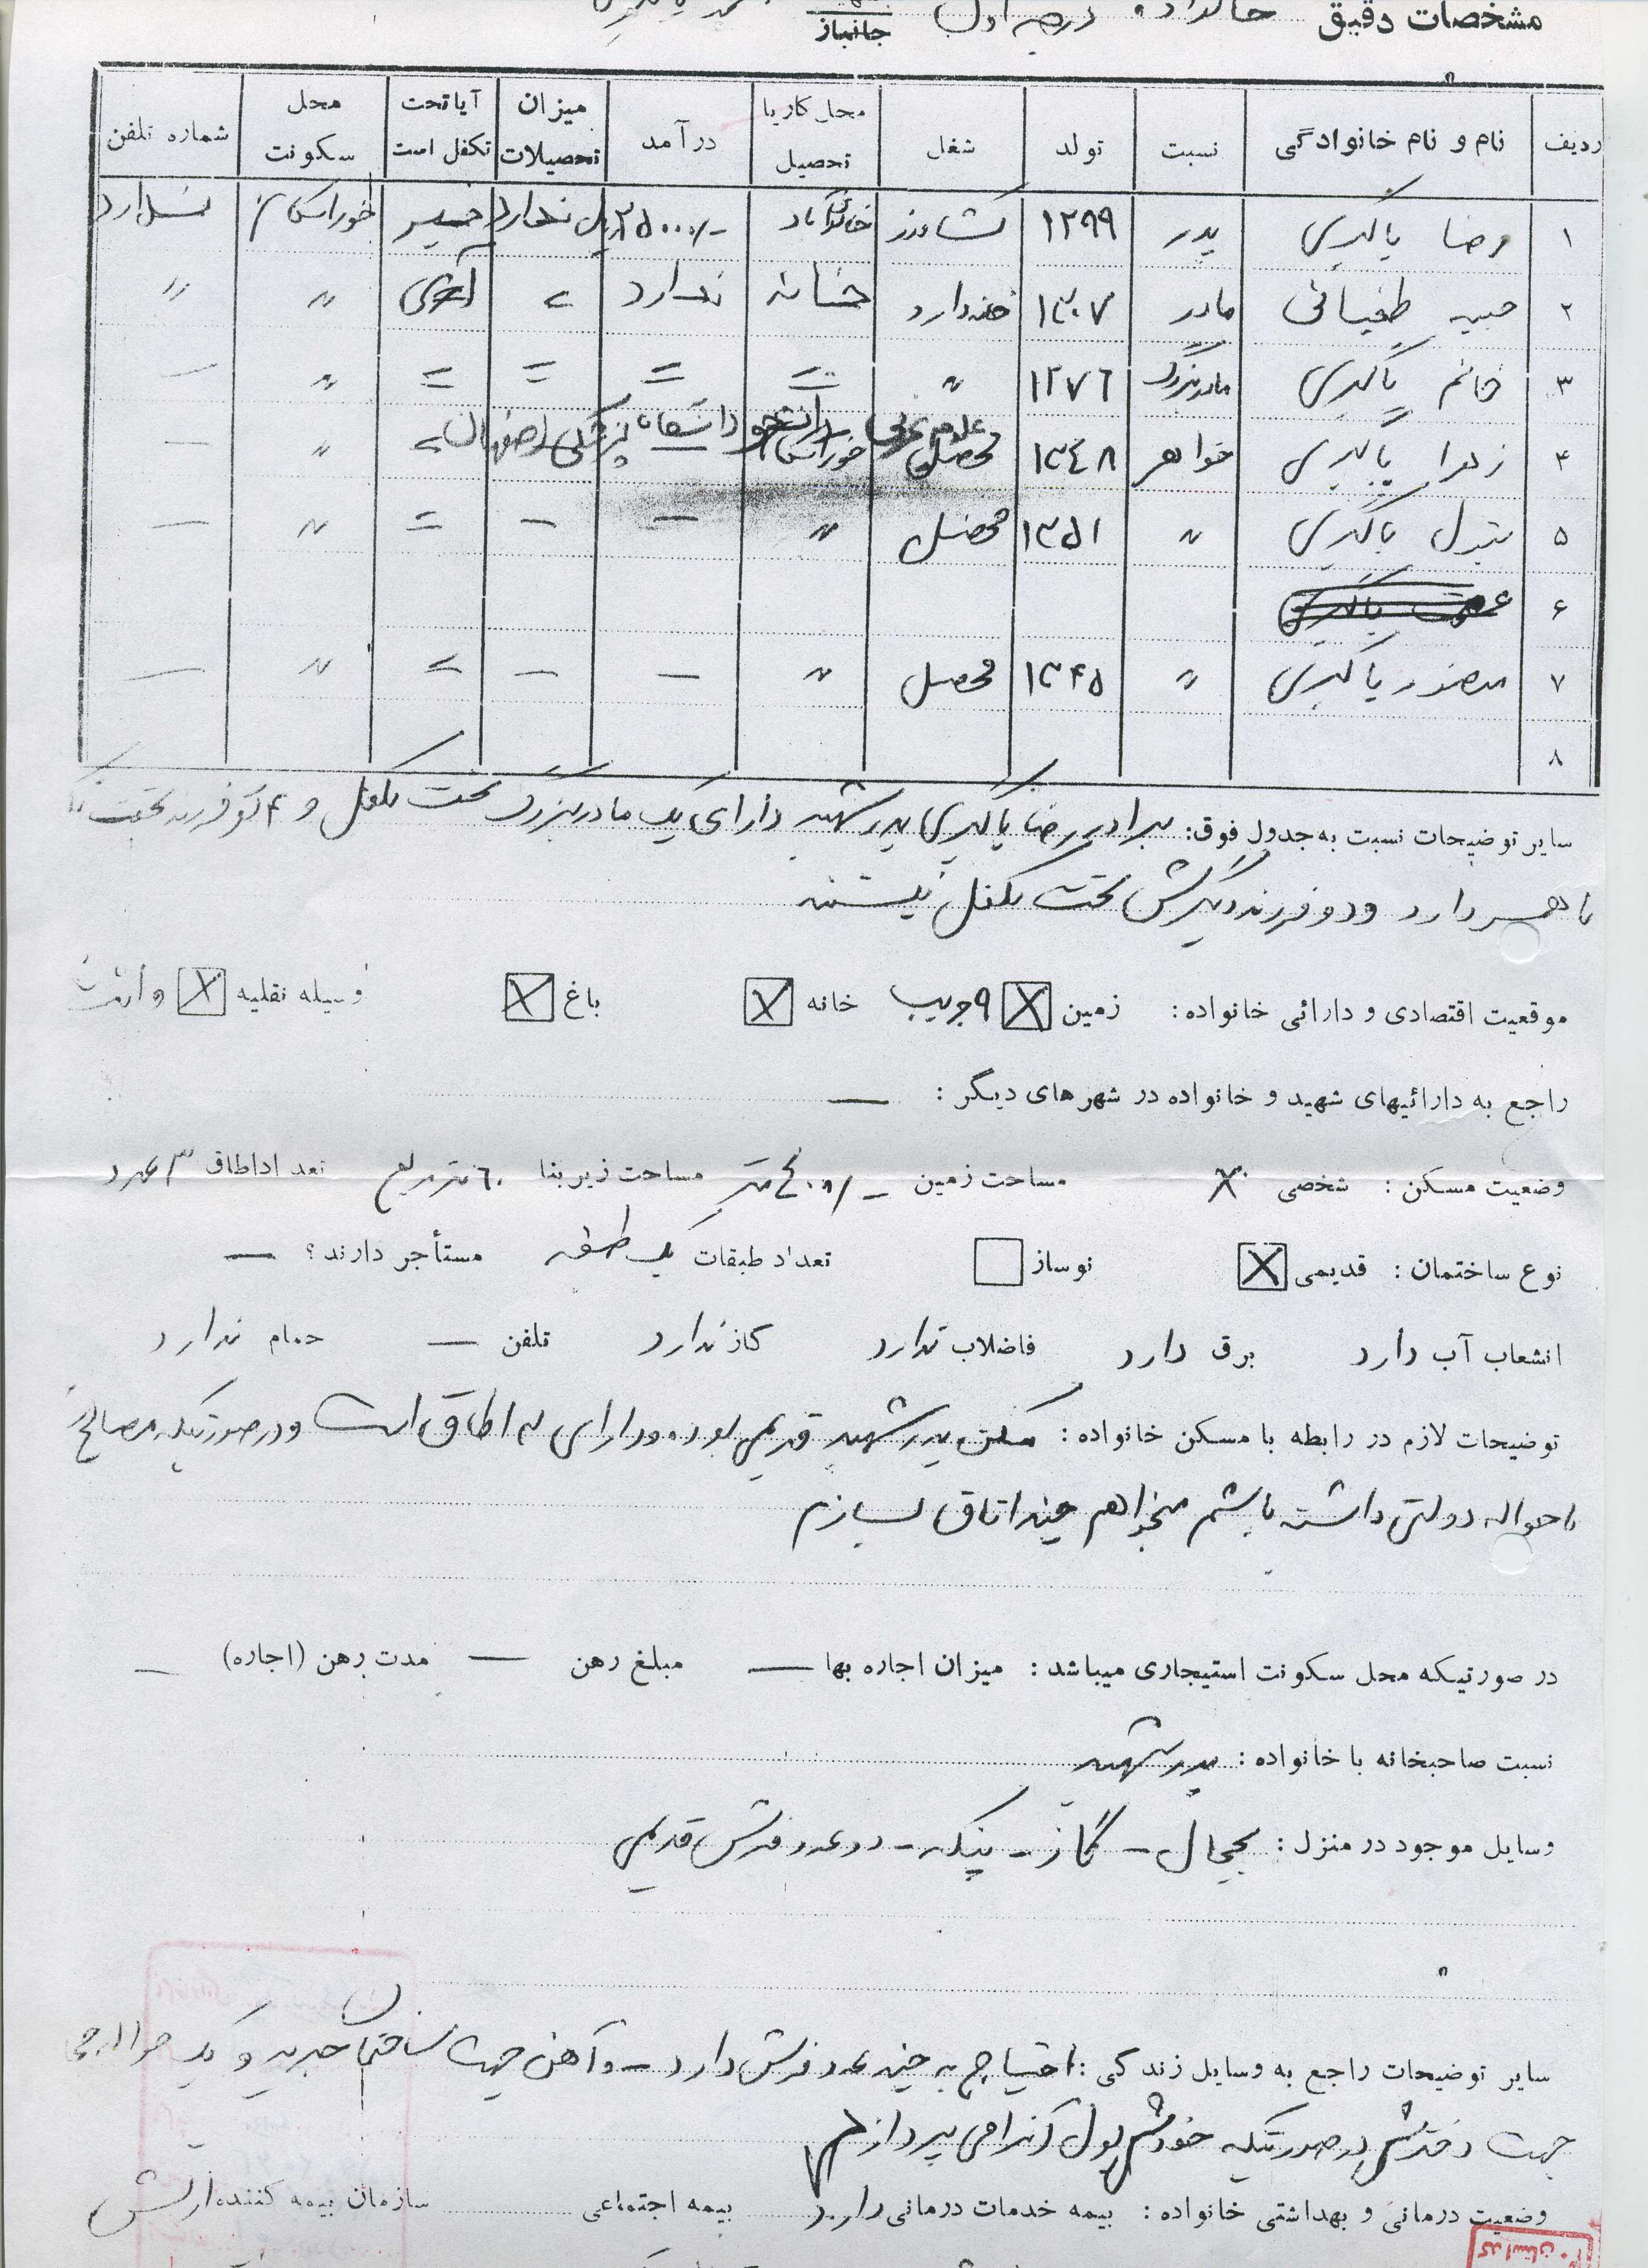 مشخصات دقیق خانواده درجه اول جانباز
ردیف نام و نام خانوادگی نسبت تولد شغل محل کار یا تحصیل درآمد میزان تحصیلات آیا تحت تکفل است محل سکونت شماره تلفن
۱ رضا پاگیری پدر ۱۲۹۹ کشاورز ۲۵۰۰۰/- ریال ندارد خیر خوراسگان ندارد
۲ طغیانی مادر ۱۳۰۷ خانه‌دار خانه ندارد = آری " "
۳ خانم پاگیری مادربزرگ ۱۲۷۶ " = = = = " —
۴ زهرا پاگیری خواهر ۱۳۴۸ محصل علوم تجربی خوراسگان دانشجو دانشگاه پزشکی اصفهان = " —
۵ بتول پاگیری " ۱۳۵۱ محصل " — — = " —
۶
۷ منصور پاگیری " ۱۳۴۵ محصل " — — = " —
۸
سایر توضیحات نسبت به جدول فوق: برادر رضا پاگیری پدر شهید دارای یک مادربزرگ تحت تکفل و ۴ تو فرزند تحت
با همسر دارد و دو فرزند دیگرش تحت تکفل نیستند
موقعیت اقتصادی و دارائی خانواده: زمین X ۹ جریب خانه X باغ X وسیله نقلیه X وانت
راجع به دارائیهای شهید و خانواده در شهرهای دیگر : —
وضعیت مسکن : شخصی X مساحت زمین متر مساحت زیربنا ۶۰ متر مربع تعداد اطاق ۳ عدد
نوع ساختمان : قدیمی X نوساز تعداد طبقات یک طبقه مستأجر دارند؟ —
انشعاب آب دارد برق دارد فاضلاب ندارد گاز ندارد تلفن — حمام ندارد
توضیحات لازم در رابطه با مسکن خانواده : مسکن پدر شهید قدیمی بوده و دارای سه اطاق است و در صورتیکه مصالح
با حواله دولتی داشته باشم میخواهم چند اتاق بسازم
در صورتیکه محل سکونت استیجاری میباشد : میزان اجاره بها — مبلغ رهن — مدت رهن (اجاره) —
نسبت صاحبخانه با خانواده : پدر شهید
وسایل موجود در منزل : یخچال - گاز - پنکه - دو عدد فرش قدیمی
سایر توضیحات راجع به وسایل زندگی : احتیاج به چند عدد فرش دارد - و آهن جهت ساختمان جدید و یک حواله
جهت دخترش در صورتیکه خودش پول آنرا می پردازم
وضعیت درمانی و بهداشتی خانواده : بیمه خدمات درمانی دارد بیمه اجتماعی سازمان بیمه کننده ارتش